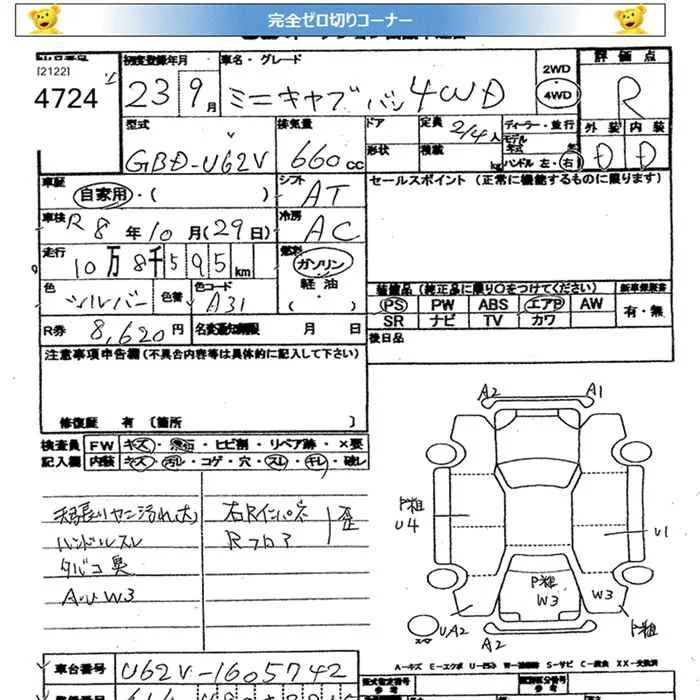 完全ゼロ切りコーナー
[2122]
4724
初度登録年月
23 9月
車名・グレード
ミニキャブバン 4WD
2WD
4WD
評価点
R
型式
GBD-U62V
排気量
660cc
ドア
形状
定員
2/4人
積載
kg
ディーラー・並行
モデル
年式 年
ハンドル 左・右
外装 内装
D D
車歴
自家用・( )
シフト
AT
セールスポイント (正常に機能するものに限ります)
車検
R8年10月(29日)
冷房
AC
走行
10万8千595km
燃料
ガソリン
軽油
( )
色
シルバー
色替
色コード
A31
装備品 (純正品に限り○をつけてください)
PS PW ABS エアB AW
SR ナビ TV カワ
新車保証書
有・無
R券
8,620円
名変通知期限 月 日
後日品
注意事項申告欄 (不具合内容等は具体的に記入して下さい)
修復歴 有 [箇所 ]
検査員
記入欄
FW キズ・ ・ヒビ割・リペア跡・×要
内装 キズ・汚レ・コゲ・穴・スレ・キレ・破レ
天張りヤニ汚れ大
ハンドルスレ
タバコ臭
A・U W3
右Rインパネ
Rフロア
歪
A2 A1
P粗
U4
U1
P粗
W3
W3
UA2
A2
P粗
A-キズ E-エクボ U-凹み S-サビ C-腐食 XX-交換済
車台番号
U62V-1605742